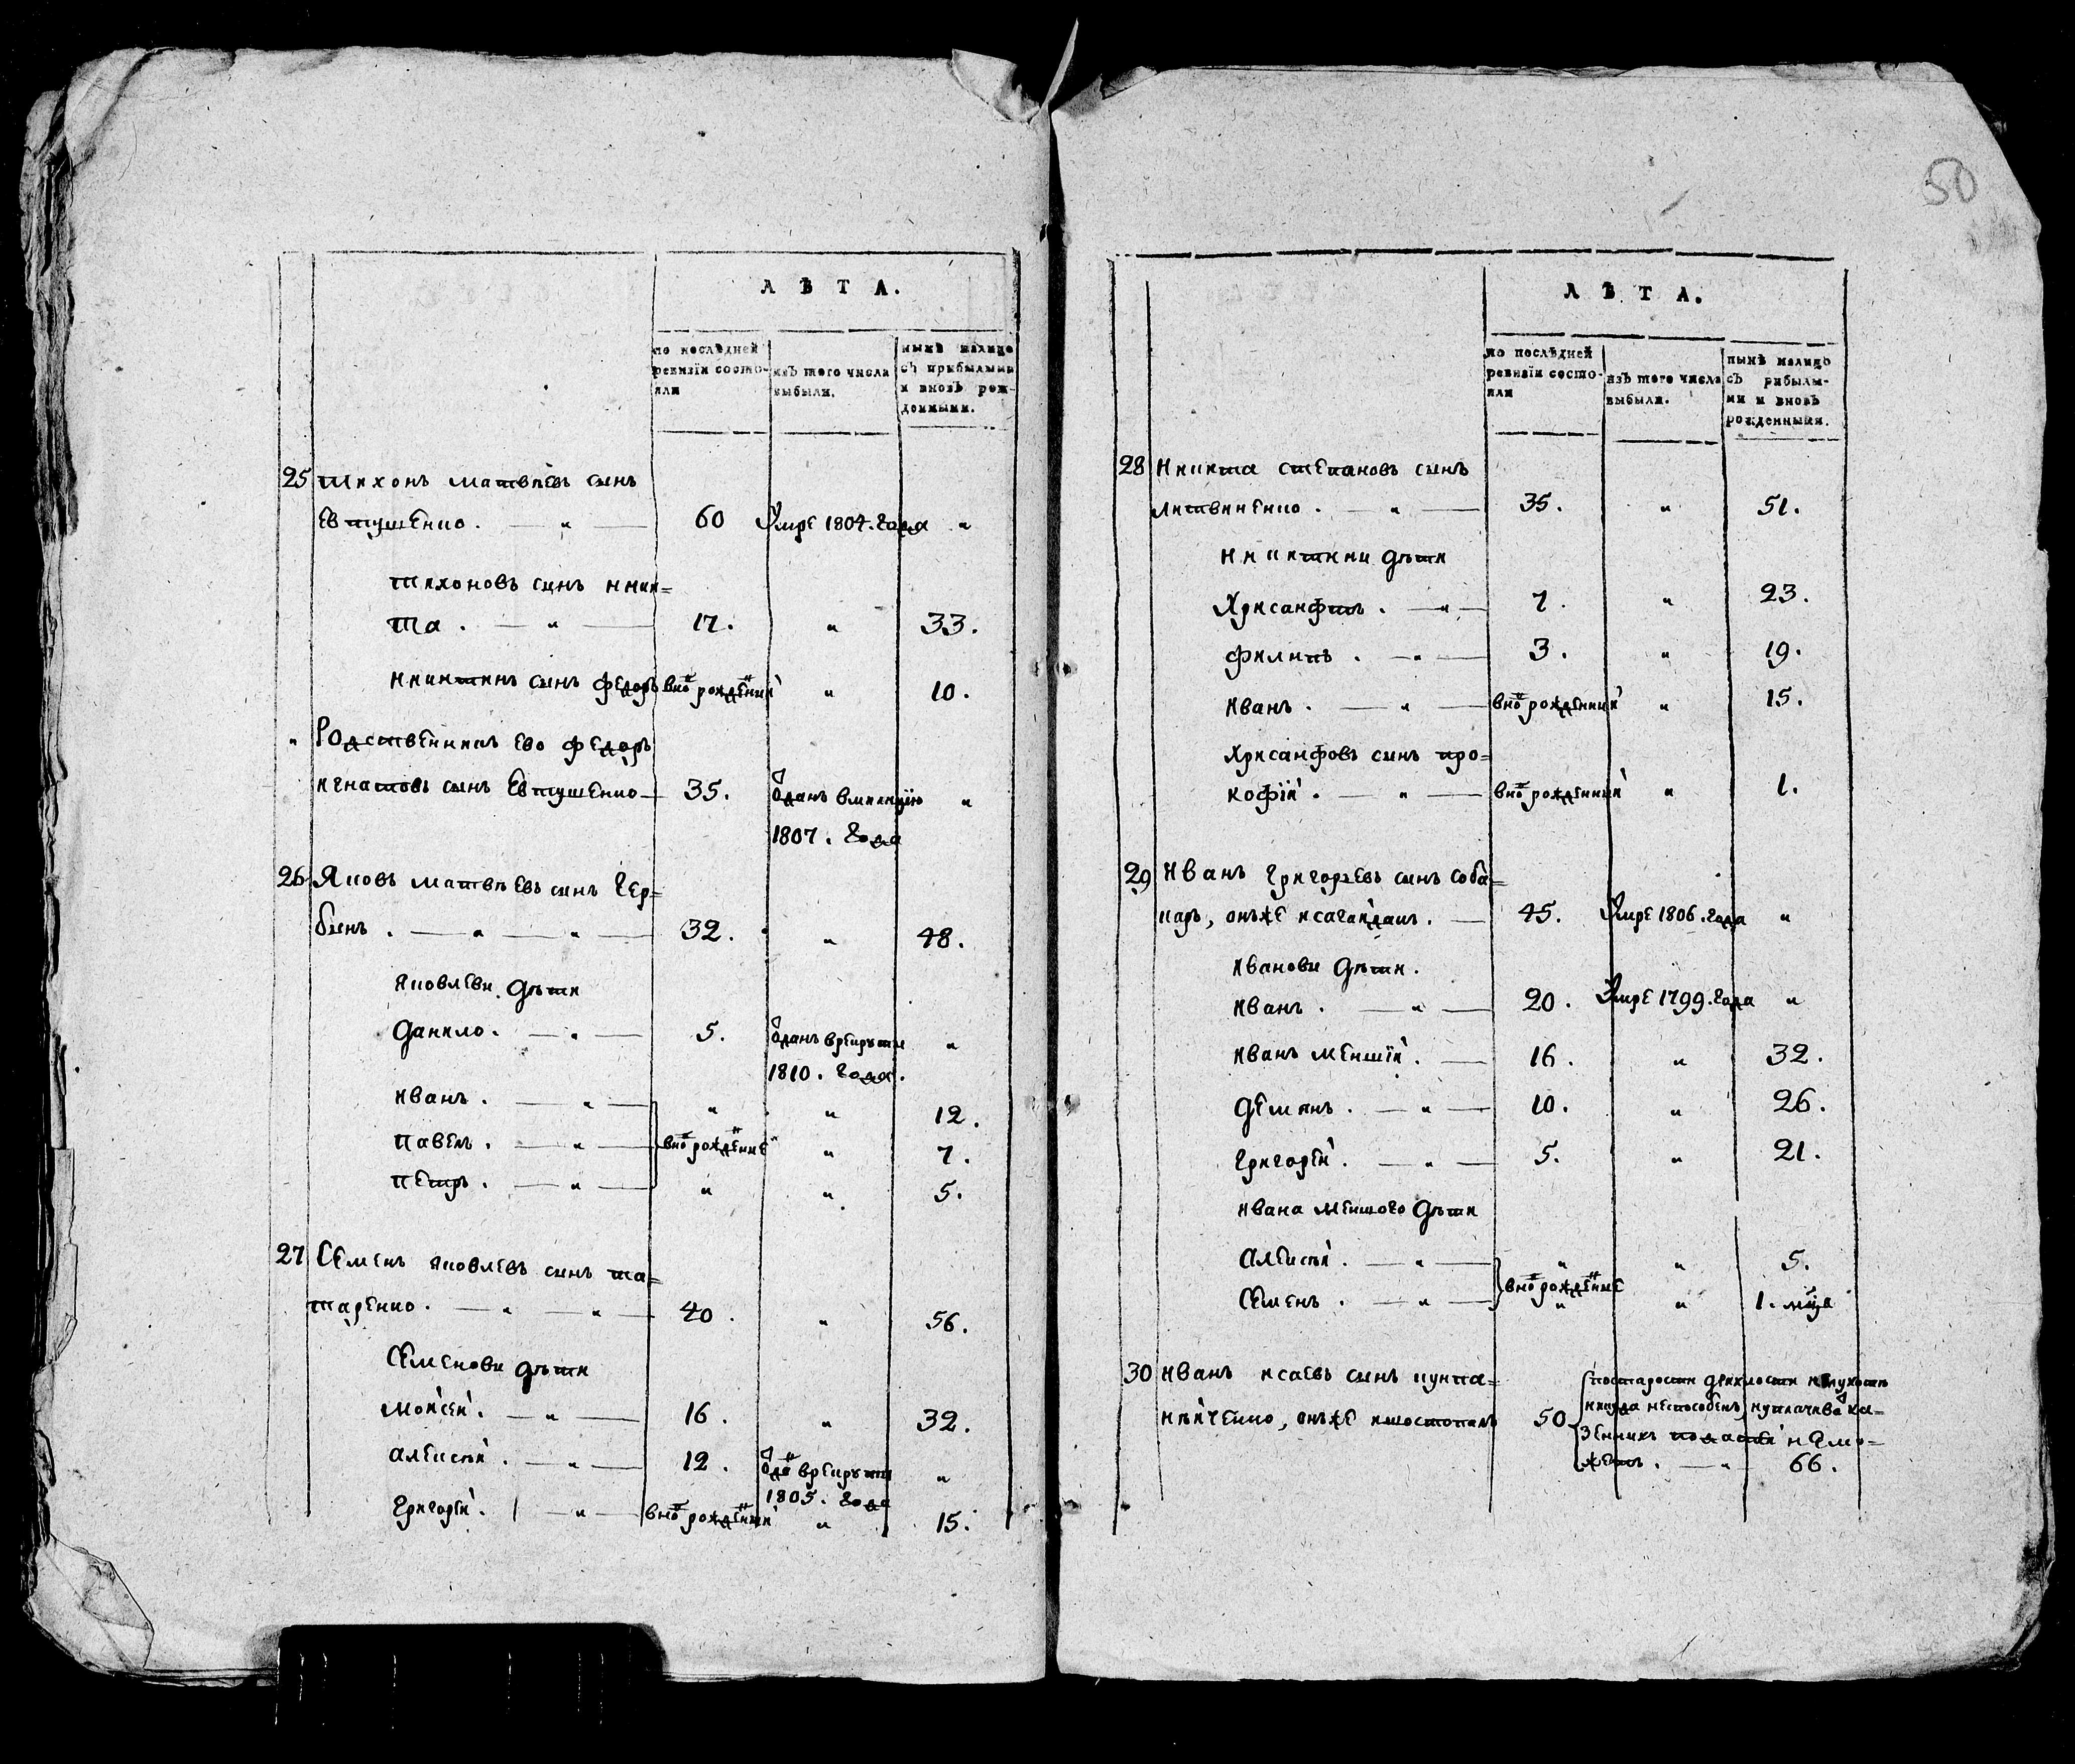 ЛѢТА.
по послѣдней ревизіи состояли
изъ того числа выбыли.
нынѣ налицо съ прибылыми и вновь рожденными.
25 Тихонъ Матвѣевъ сынъ
Евтушенко. — " — 60 Умре 1804. года "
Тихоновъ сынъ Ники=
та. — " — 17. " 33.
Никитинъ сынъ Федоръ вновь рожденний " 10.
" Родственникъ ево Федоръ
Игнатовъ сынъ Евтушенко — 35. Отданъ в милицію "
1807. года
26 Яковъ Матвѣевъ сынъ Гер=
бинъ. — " — " — 32. " 48.
Яковлеви дѣти
Данило. — " — 5. Отданъ в рекрути "
1810. года.
Иванъ. — " — " " 12.
Павелъ. — " — вновь рожденние " 7.
Петръ. — " — " " 5.
27 Семенъ Яковлевъ синъ Та=
таренко. — " — " — 40. " 56.
Семенови дѣти
Моисей. — " — 16. " 32.
Алексѣй. — " — 12. Отданъ в рекрути "
1805. года
Григорій. — " — вновь рожденний " 15.
50
ЛѢТА.
по послѣдней ревизіи состояли
изъ того числа выбыли.
нынѣ налицо съ рибылыми и вновь рожденными.
28 Никита Степановъ сынъ
Литвиненко. — " — 35. " 51.
Никитини дѣти
Хрисанфъ. — " — 7. " 23.
Филипъ. — " — 3. " 19.
Иванъ. — " — вновь рожденний " 15.
Хрисанфовъ сынъ Про=
кофій. — " — вновь рожденний " 1.
29 Иванъ Григорьевъ синъ Соба=
каръ, онъже — 45. Умре 1806. года "
Иванови дѣти.
Иванъ. — " — 20. Умре 1799. года "
Иванъ менший. — 16. " 32.
Демянъ. — " — 10. " 26.
Григорій. — " — 5. " 21.
Ивана меншого дѣти
Алексѣй. — " — " " 5.
вновь рожденние
Семенъ. — " — " " 1. мца
30 Иванъ Исаевъ синъ
онъже 50 по старости дряхлости
никуда неспособенъ,
зенникъ податей немо=
жетъ. — " — 66.